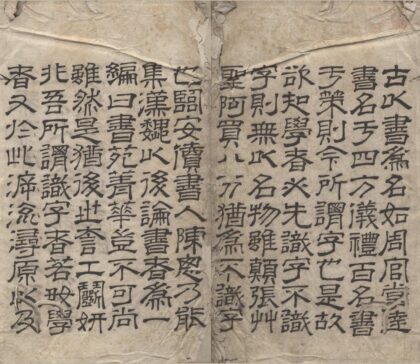 古以書爲名如周官掌達
書名于四方儀禮百名書
于策則今所謂字也是故
欲知學者必先識字不識
字則無以名物雖顛張艸
聖阿買八分猶爲不識字
也臨安鬻書人陳思乃能
集漢魏以後論書者爲一
編曰書苑菁華豈不可尚
雖然是猶後世夸工鬭妍
非吾所謂識字者若好學
者又於此泝流尋原以及